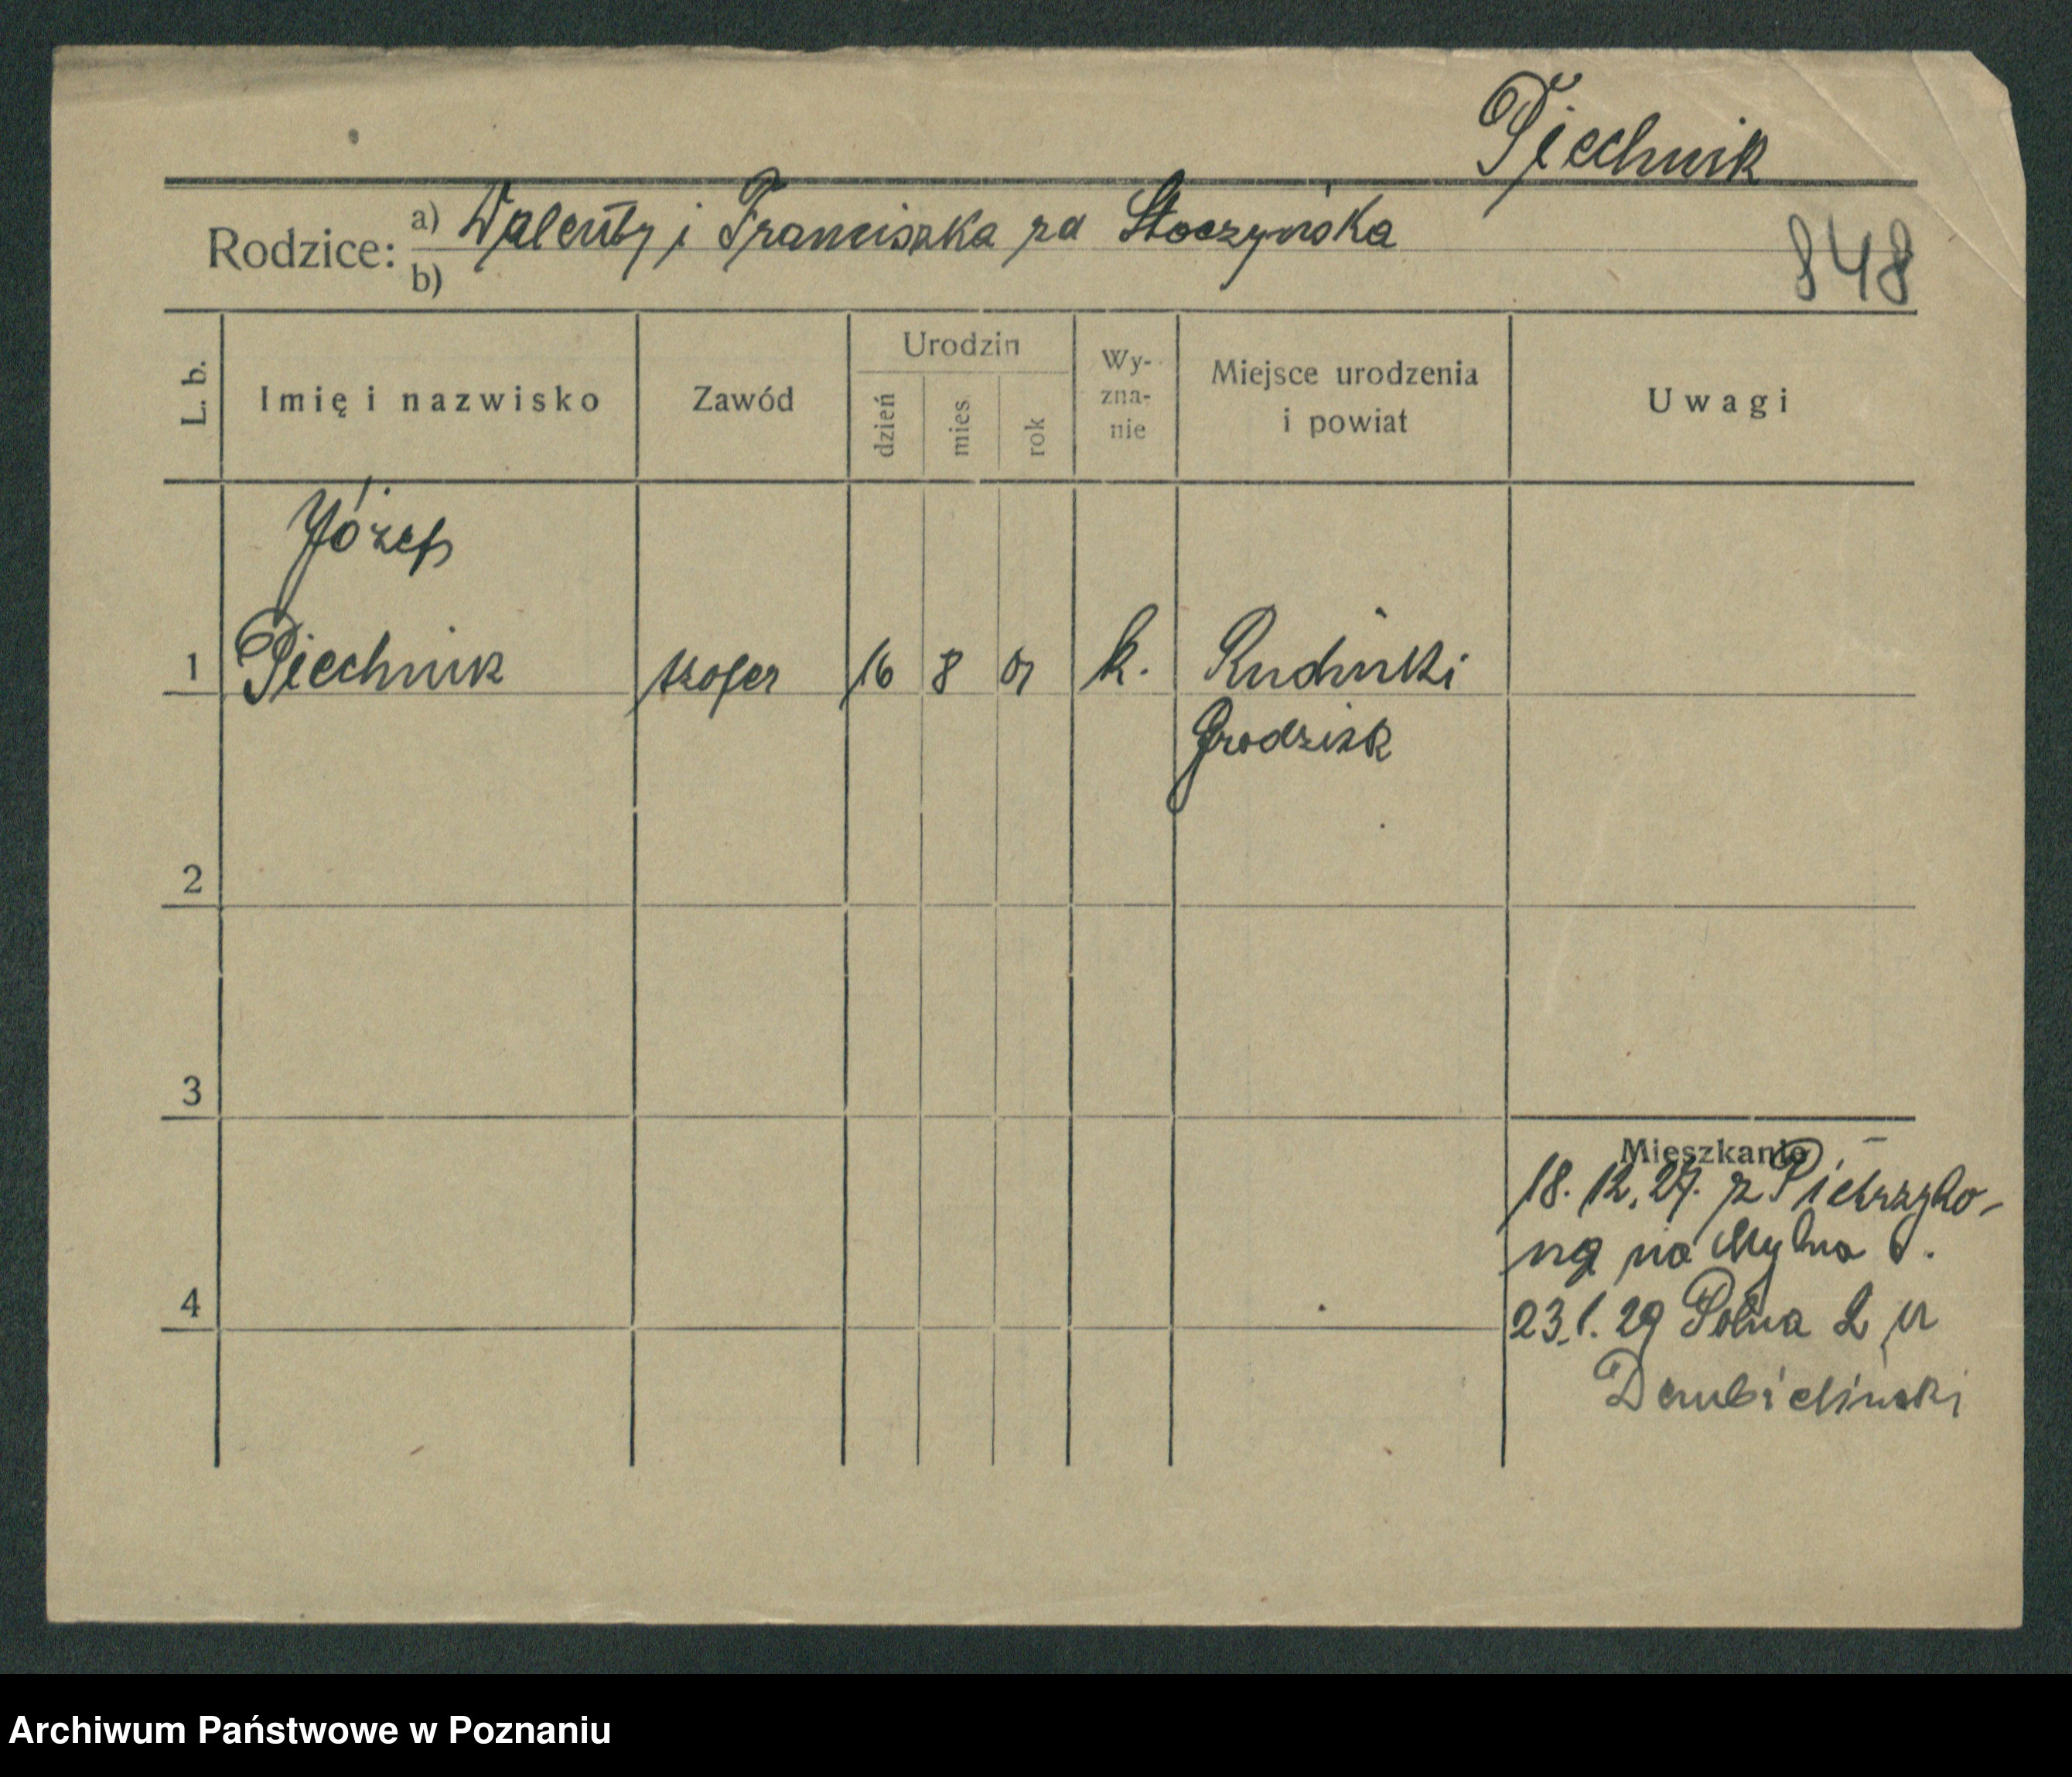 Piechnik
Rodzice: a) Walenty i Franciszka zd Stoczyńska
b)
848
L. b.
Imię i nazwisko
Zawód
Urodzin
dzień
mies.
rok
Wy-
zna-
nie
Miejsce urodzenia
i powiat
Uwagi
Józef
1 Piechnik szofer 16 8 01 k. Rudniki
Grodzisk
2
3
Mieszkanie
18. 12. 27. z
na Mylna 6.
4
23.1.29 Polna 2 u
Archiwum Państwowe w Poznaniu